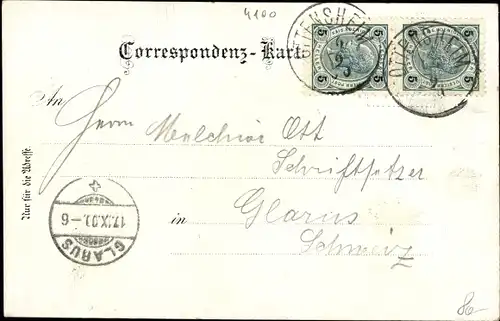 4100
OTTENSHEIM
OTTENSHEIM
5 5 5 5
Correspondenz-Karte
An
Herrn Melchior Ott
Schriftsetzer
in Glarus
Schweiz
Nur für die Adresse.
17.IX.00.-6
GLARUS